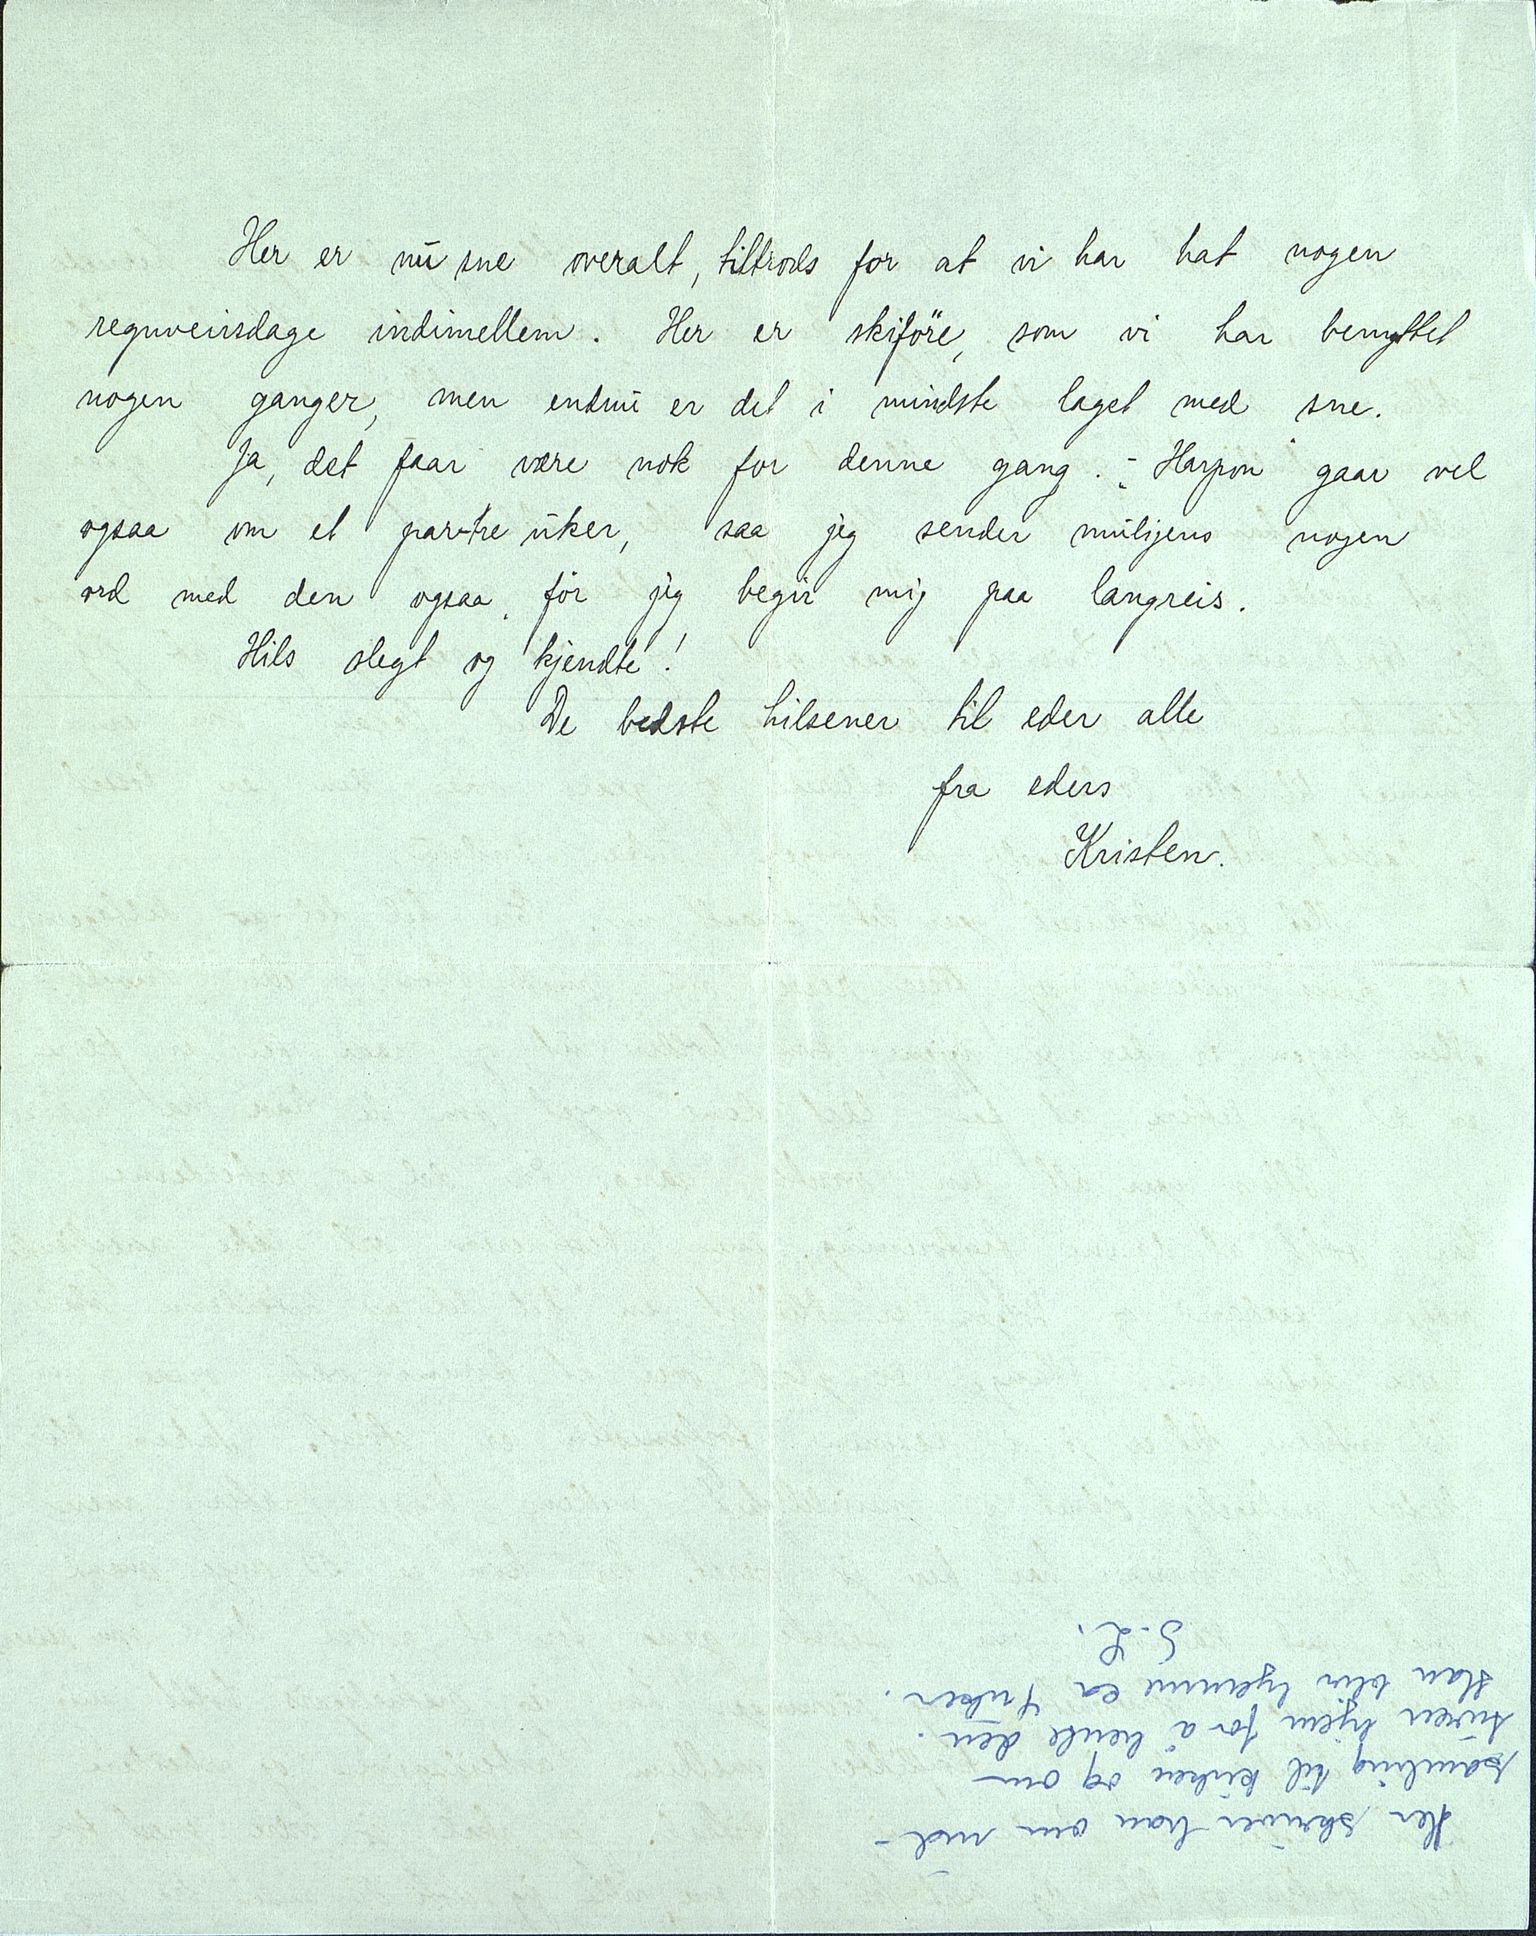 Her er nu sne overalt, tiltrods for at vi har hat nogen
regnveirsdage indimellem. Her er skiföre, som vi har benyttet
nogen ganger, men endnu er det i mindste laget med sne.
Ja, det faar være nok for denne gang. - "Harpon" gaar vel
ogsaa om et par-tre uker, saa jeg sender muligens nogen
ord med den ogsaa, för jeg begir mig paa langreis.
Hils slegt og kjendte!
De bedste hilsener til eder alle
fra eders
Kristen.
Her skriver han om
samling til kirken og om
turen hjem for å hente den.
Han blir hjemme ca 4 uker.
S. L.